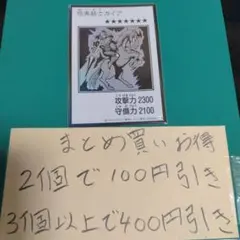 暗黒騎士ガイア
攻撃力 2300
守備力 2100
まとめ買いお得
2個で100円引き
3個以上で400円引き